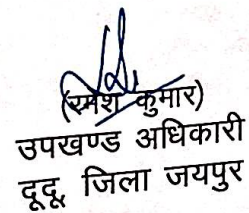 (रमेश कुमार)
उपखण्ड अधिकारी
दूदू, जिला जयपुर